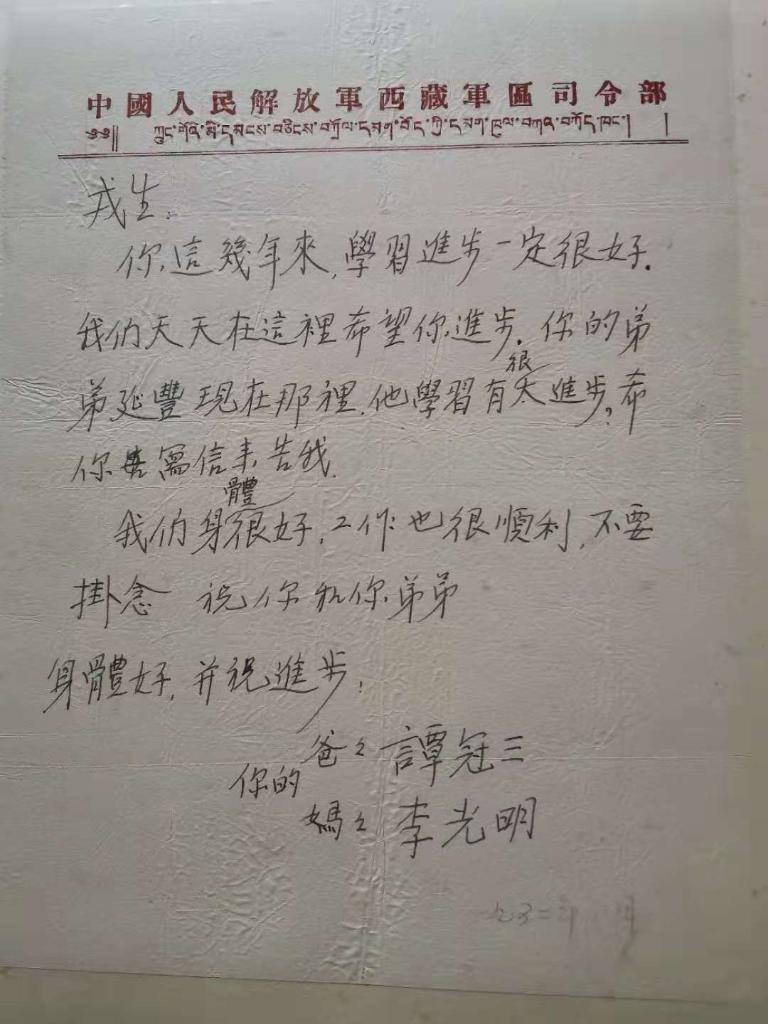 中國人民解放軍西藏軍區司令部
༄༅།། ཀྲུང་གོའི་མི་དམངས་བཅིངས་བཀྲོལ་དམག་བོད་ཀྱི་དམག་ཁུལ་བཀའ་བཀོད་ཁང་། །
戎生：
你這幾年來，學習進步一定很好．
我们天天在這裡希望你進步．你的弟
弟延豐現在那裡．他學習有很大進步？希
你寫信来告我．
我们身體很好，工作也很順利，不要
掛念 祝你和你弟弟
身體好，并祝進步！
你的
爸々 譚冠三
媽々 李光明